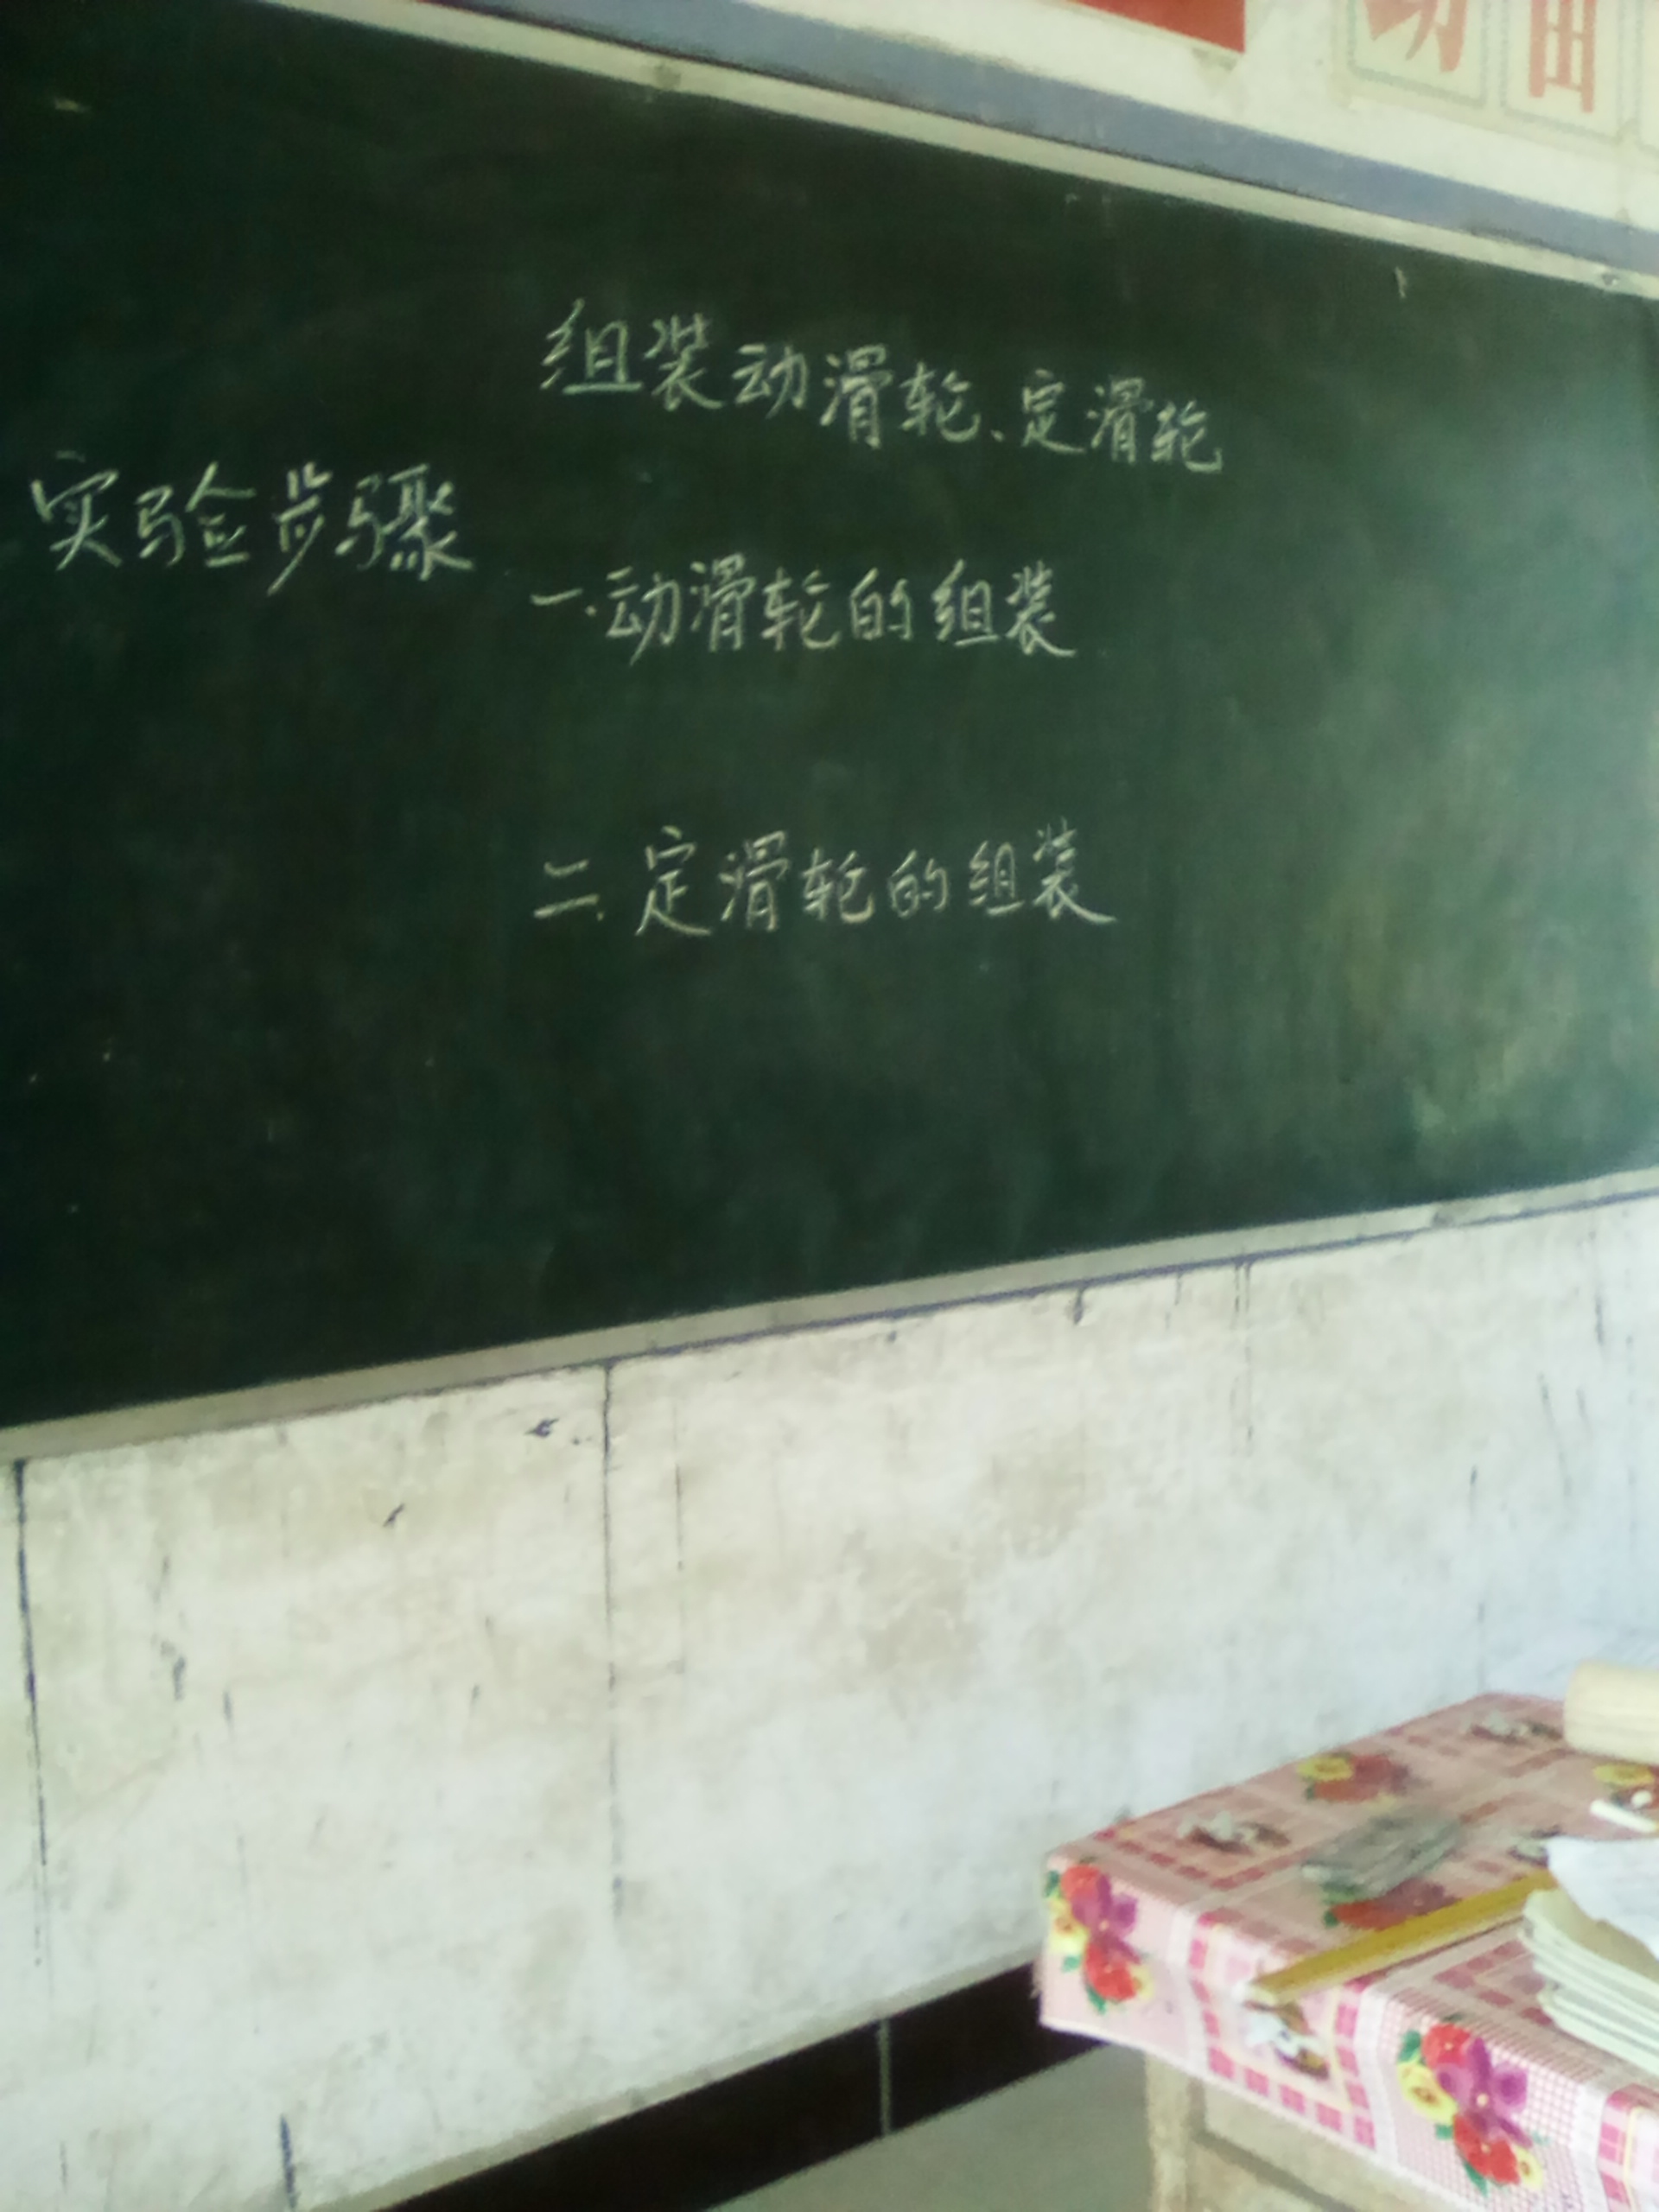 组装动滑轮、定滑轮
实验步骤
一.动滑轮的组装
二.定滑轮的组装